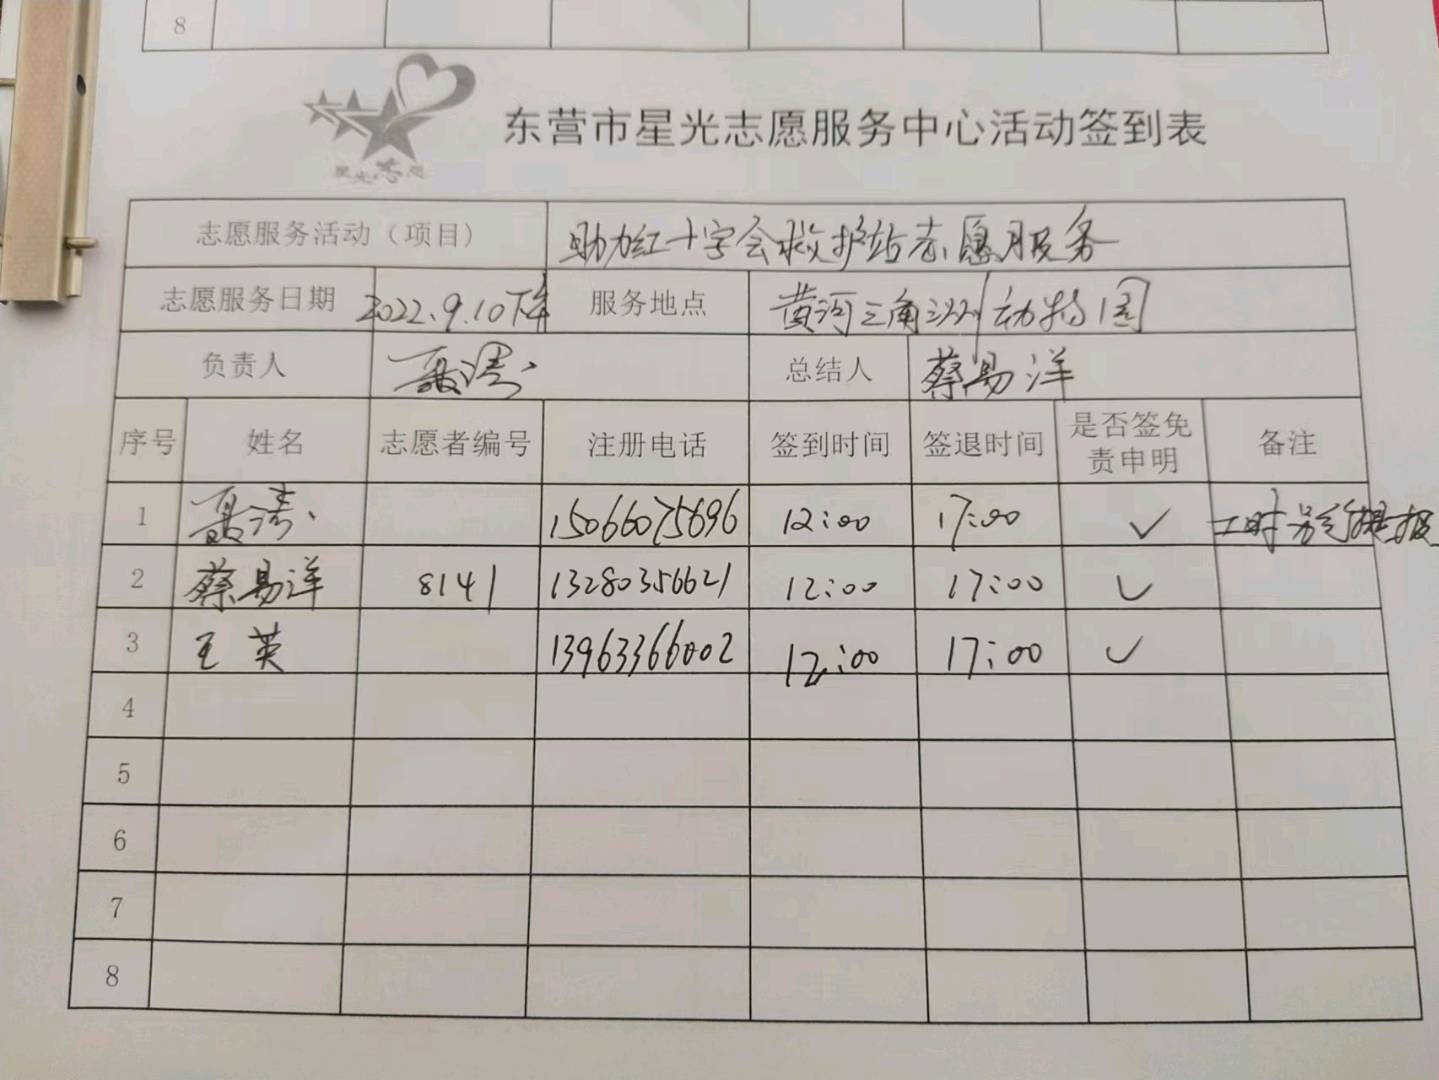 8
星光志愿
东营市星光志愿服务中心活动签到表
志愿服务活动（项目） 助力红十字会救护站志愿服务
志愿服务日期 2022.9.10下午 服务地点 黄河三角洲动物园
负责人 聂涛 总结人 蔡易洋
序号 姓名 志愿者编号 注册电话 签到时间 签退时间 是否签免责申明 备注
1 15066075696 12:00 17:00 ✓ 工时别提报
2 蔡易洋 8141 13280356621 12:00 17:00 ✓
3 王英 13963366002 12:00 17:00 ✓
4
5
6
7
8